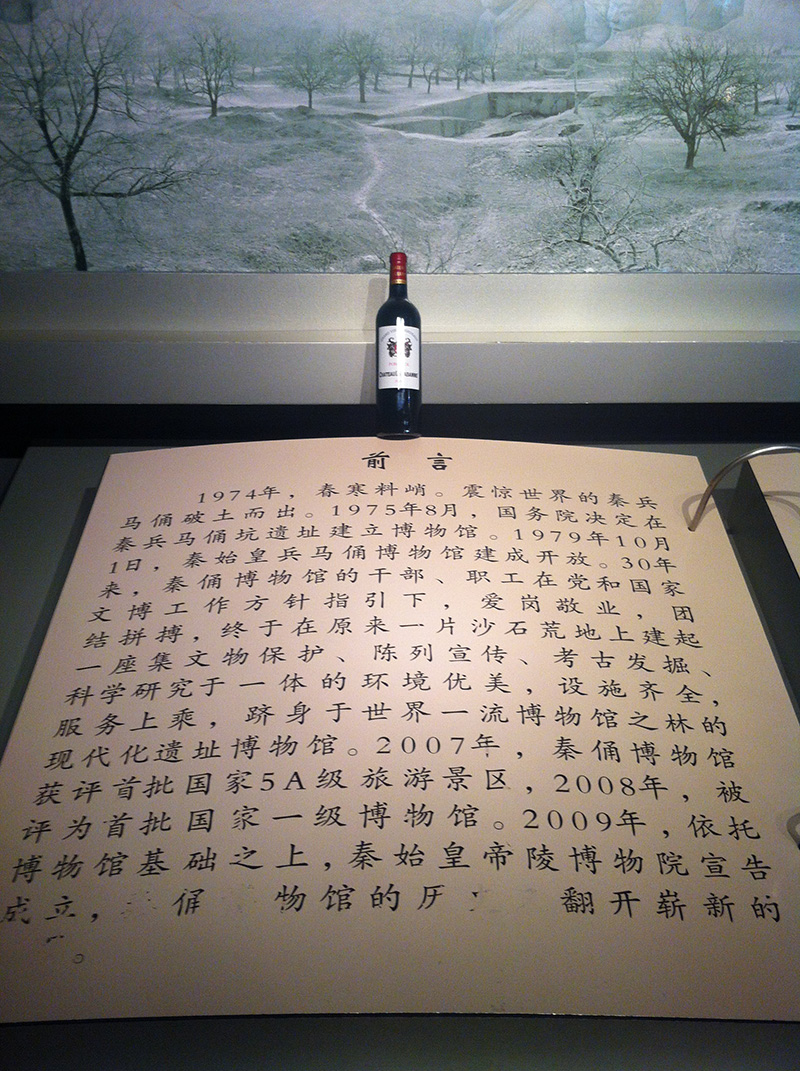 CHATEAU
前言
1974年，春寒料峭。震惊世界的秦兵
马俑破土而出。1975年8月，国务院决定在
秦兵马俑坑遗址建立博物馆。1979年10月
1日，秦始皇兵马俑博物馆建成开放。30年
来，秦俑博物馆的干部、职工在党和国家
文博工作方针指引下，爱岗敬业，团
结拼搏，终于在原来一片沙石荒地上建起
一座集文物保护、陈列宣传、考古发掘、
科学研究于一体的环境优美，设施齐全，
服务上乘，跻身于世界一流博物馆之林的
现代化遗址博物馆。2007年，秦俑博物馆
获评首批国家5A级旅游景区，2008年，被
评为首批国家一级博物馆。2009年，依托
博物馆基础之上，秦始皇帝陵博物院宣告
成立，物馆的历翻开崭新的
。